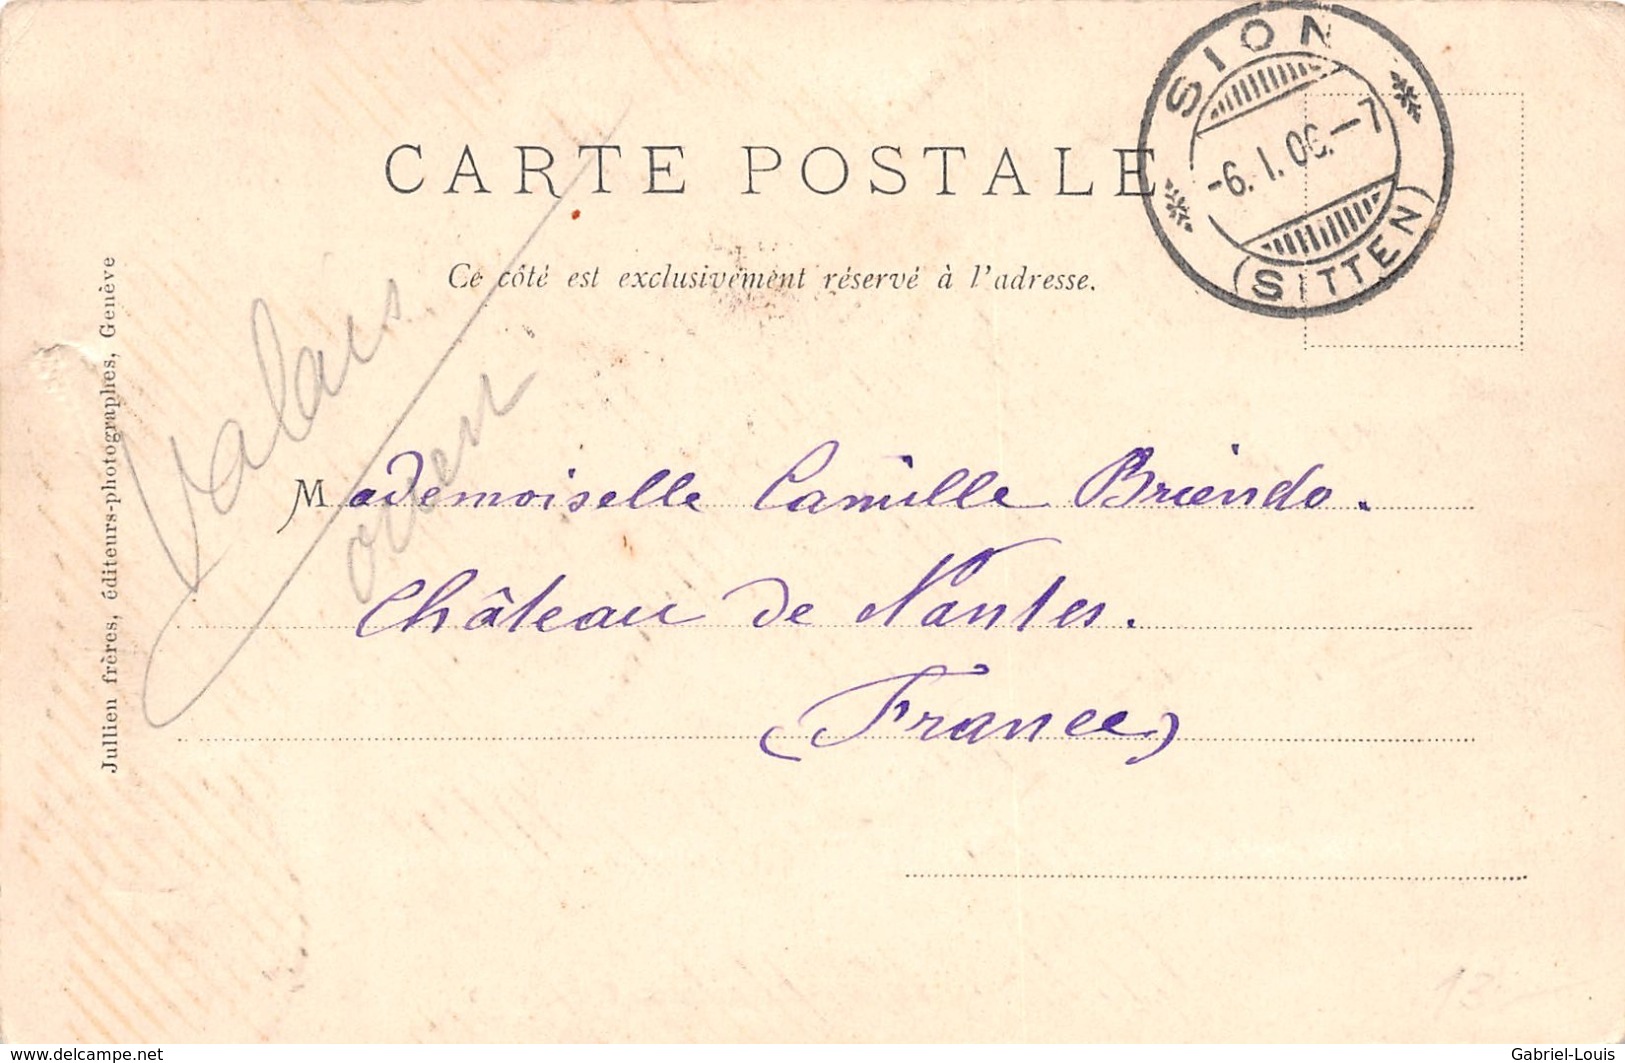 CARTE POSTALE
Ce côté est exclusivement réservé à l'adresse.
SION
-6. I. 06.–7
(SITTEN)
Jullien frères, éditeurs-photographes, Genève
Valais
Mademoiselle Camille Briendo.
Château de Nantes.
(France)
13.–
www.delcampe.net
Gabriel-Louis